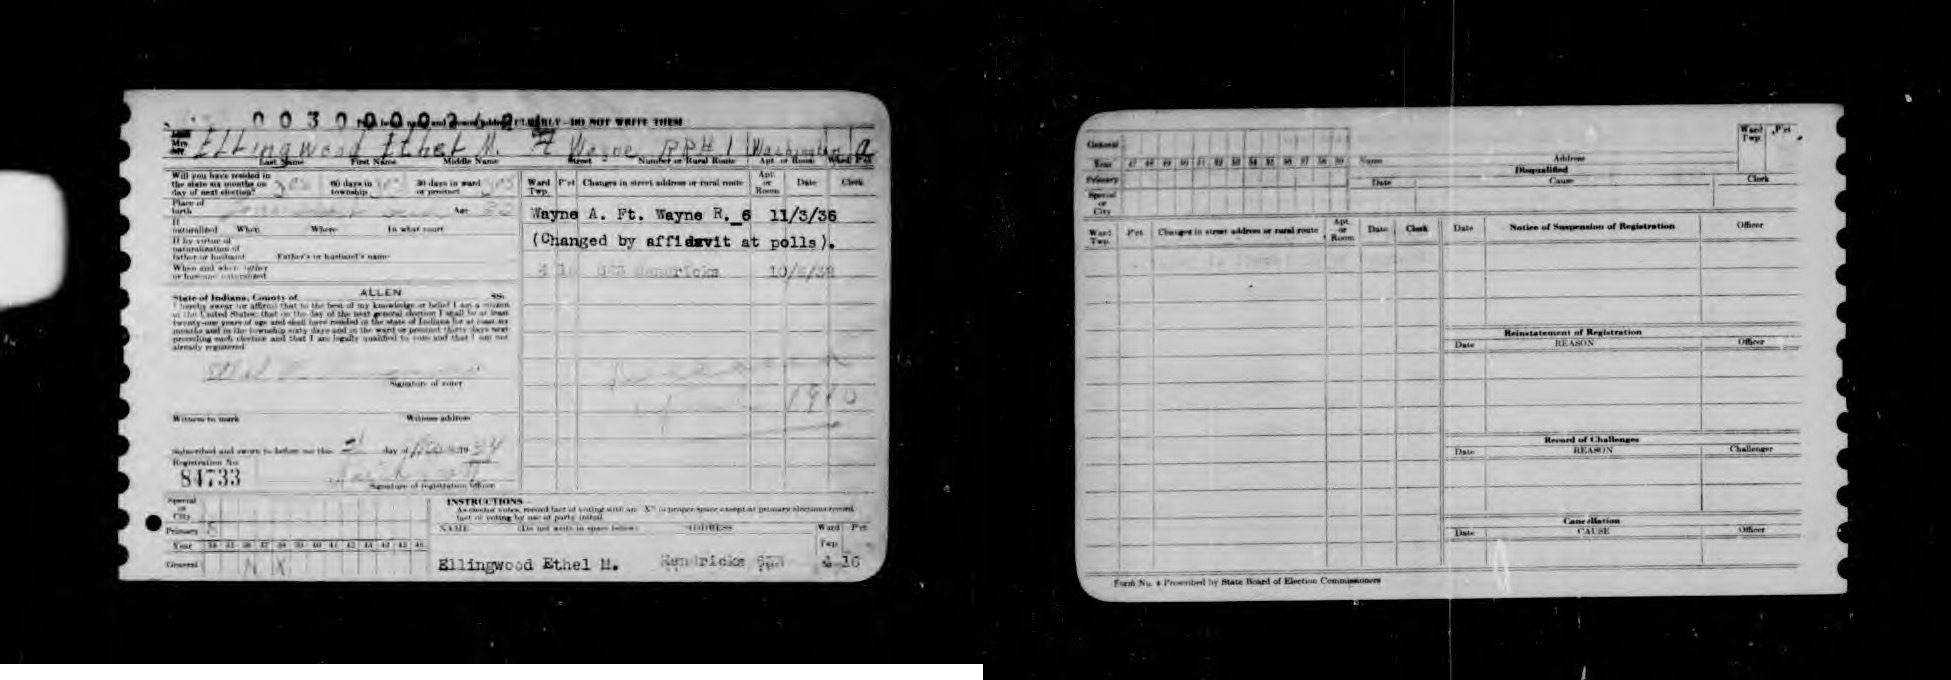 LY—DO NOT WRITE THEM
Ellingwood Ethel M. Ft Wayne RR#1 Washington a
Last Name First Name Middle Name Street Number or Rural Route Apt. or Room Ward Pct
Will you have resided in
the state six months on yes 60 days in yes 30 days in ward yes
day of next election? township or precinct
Place of
birth Age
If
naturalized When Where In what court
If by virtue of
naturalization of
father or husband Father's or husband's name
When and where father
or husband naturalized
State of Indiana, County of ALLEN ss:
I hereby swear (or affirm) that to the best of my knowledge or belief I am a citizen
of the United States; that on the day of the next general election I shall be at least
twenty-one years of age and shall have resided in the state of Indiana for at least six
months and in the township sixty days and in the ward or precinct thirty days next
preceding such election and that I am legally qualified to vote and that I am not
already registered
Signature of voter
Witness to mark Witness address
Subscribed and sworn to before me this day of 19 34
Registration No.
84733
Signature of registration officer
Ward Twp. P'ct Changes in street address or rural route Apt. or Room Date Clerk
Wayne A. Ft. Wayne R. 6 11/3/36
(Changed by affidavit at polls).
4 16 Hendricks 10/ /38
1940
Special
or
City
Primary
Year 34 35 36 37 38 39 40 41 42 43 44 45 46
General X X
INSTRUCTIONS
As elector votes, record fact of voting with an "X" in proper space except at primary elections record
fact of voting by use of party initial
NAME (Do not write in space below) ADDRESS Ward Twp. P'ct
Ellingwood Ethel M. Hendricks 4 16
General
Year 47 48 49 50 51 52 53 54 55 56 57 58 59
Primary
Special
or
City
Name Address Ward Twp. P'ct
Disqualified
Date Cause Clerk
Ward Twp. P'ct Changes in street address or rural route Apt. or Room Date Clerk
Date Notice of Suspension of Registration Officer
Reinstatement of Registration
Date REASON Officer
Record of Challenges
Date REASON Challenger
Cancellation
Date CAUSE Officer
Form No. 4 Prescribed by State Board of Election Commissioners